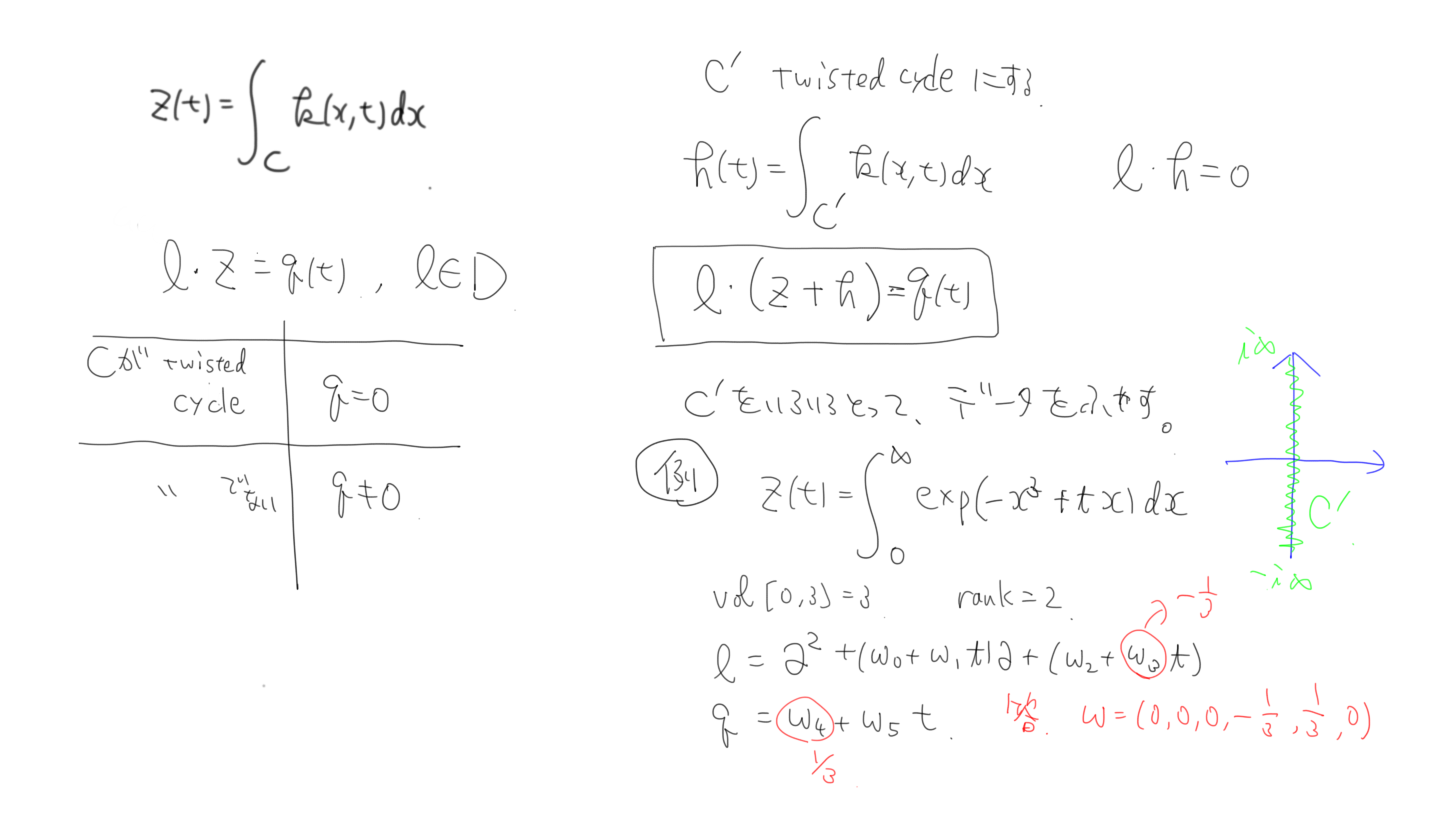 z(t) = ∫_C k(x,t)dx
l・z = q(t) , l∈D
Cが twisted cycle
q=0
〃 でない
q≠0
C′ twisted cycle にする.
h(t) = ∫_{C′} k(x,t)dx l・h=0
l・(z + h) = q(t)
C′をいろいろとって、データをふやす。
例 z(t) = ∫_0^∞ exp(-x³ + t x) dx
vol [0,3) = 3 rank = 2.
l = ∂² + (w₀ + w₁ t)∂ + (w₂ + w₃ t)
→ -1/3
q = w₄ + w₅ t.
1/3
解答. w = (0, 0, 0, -1/3, 1/3, 0)
i∞
C′
-i∞